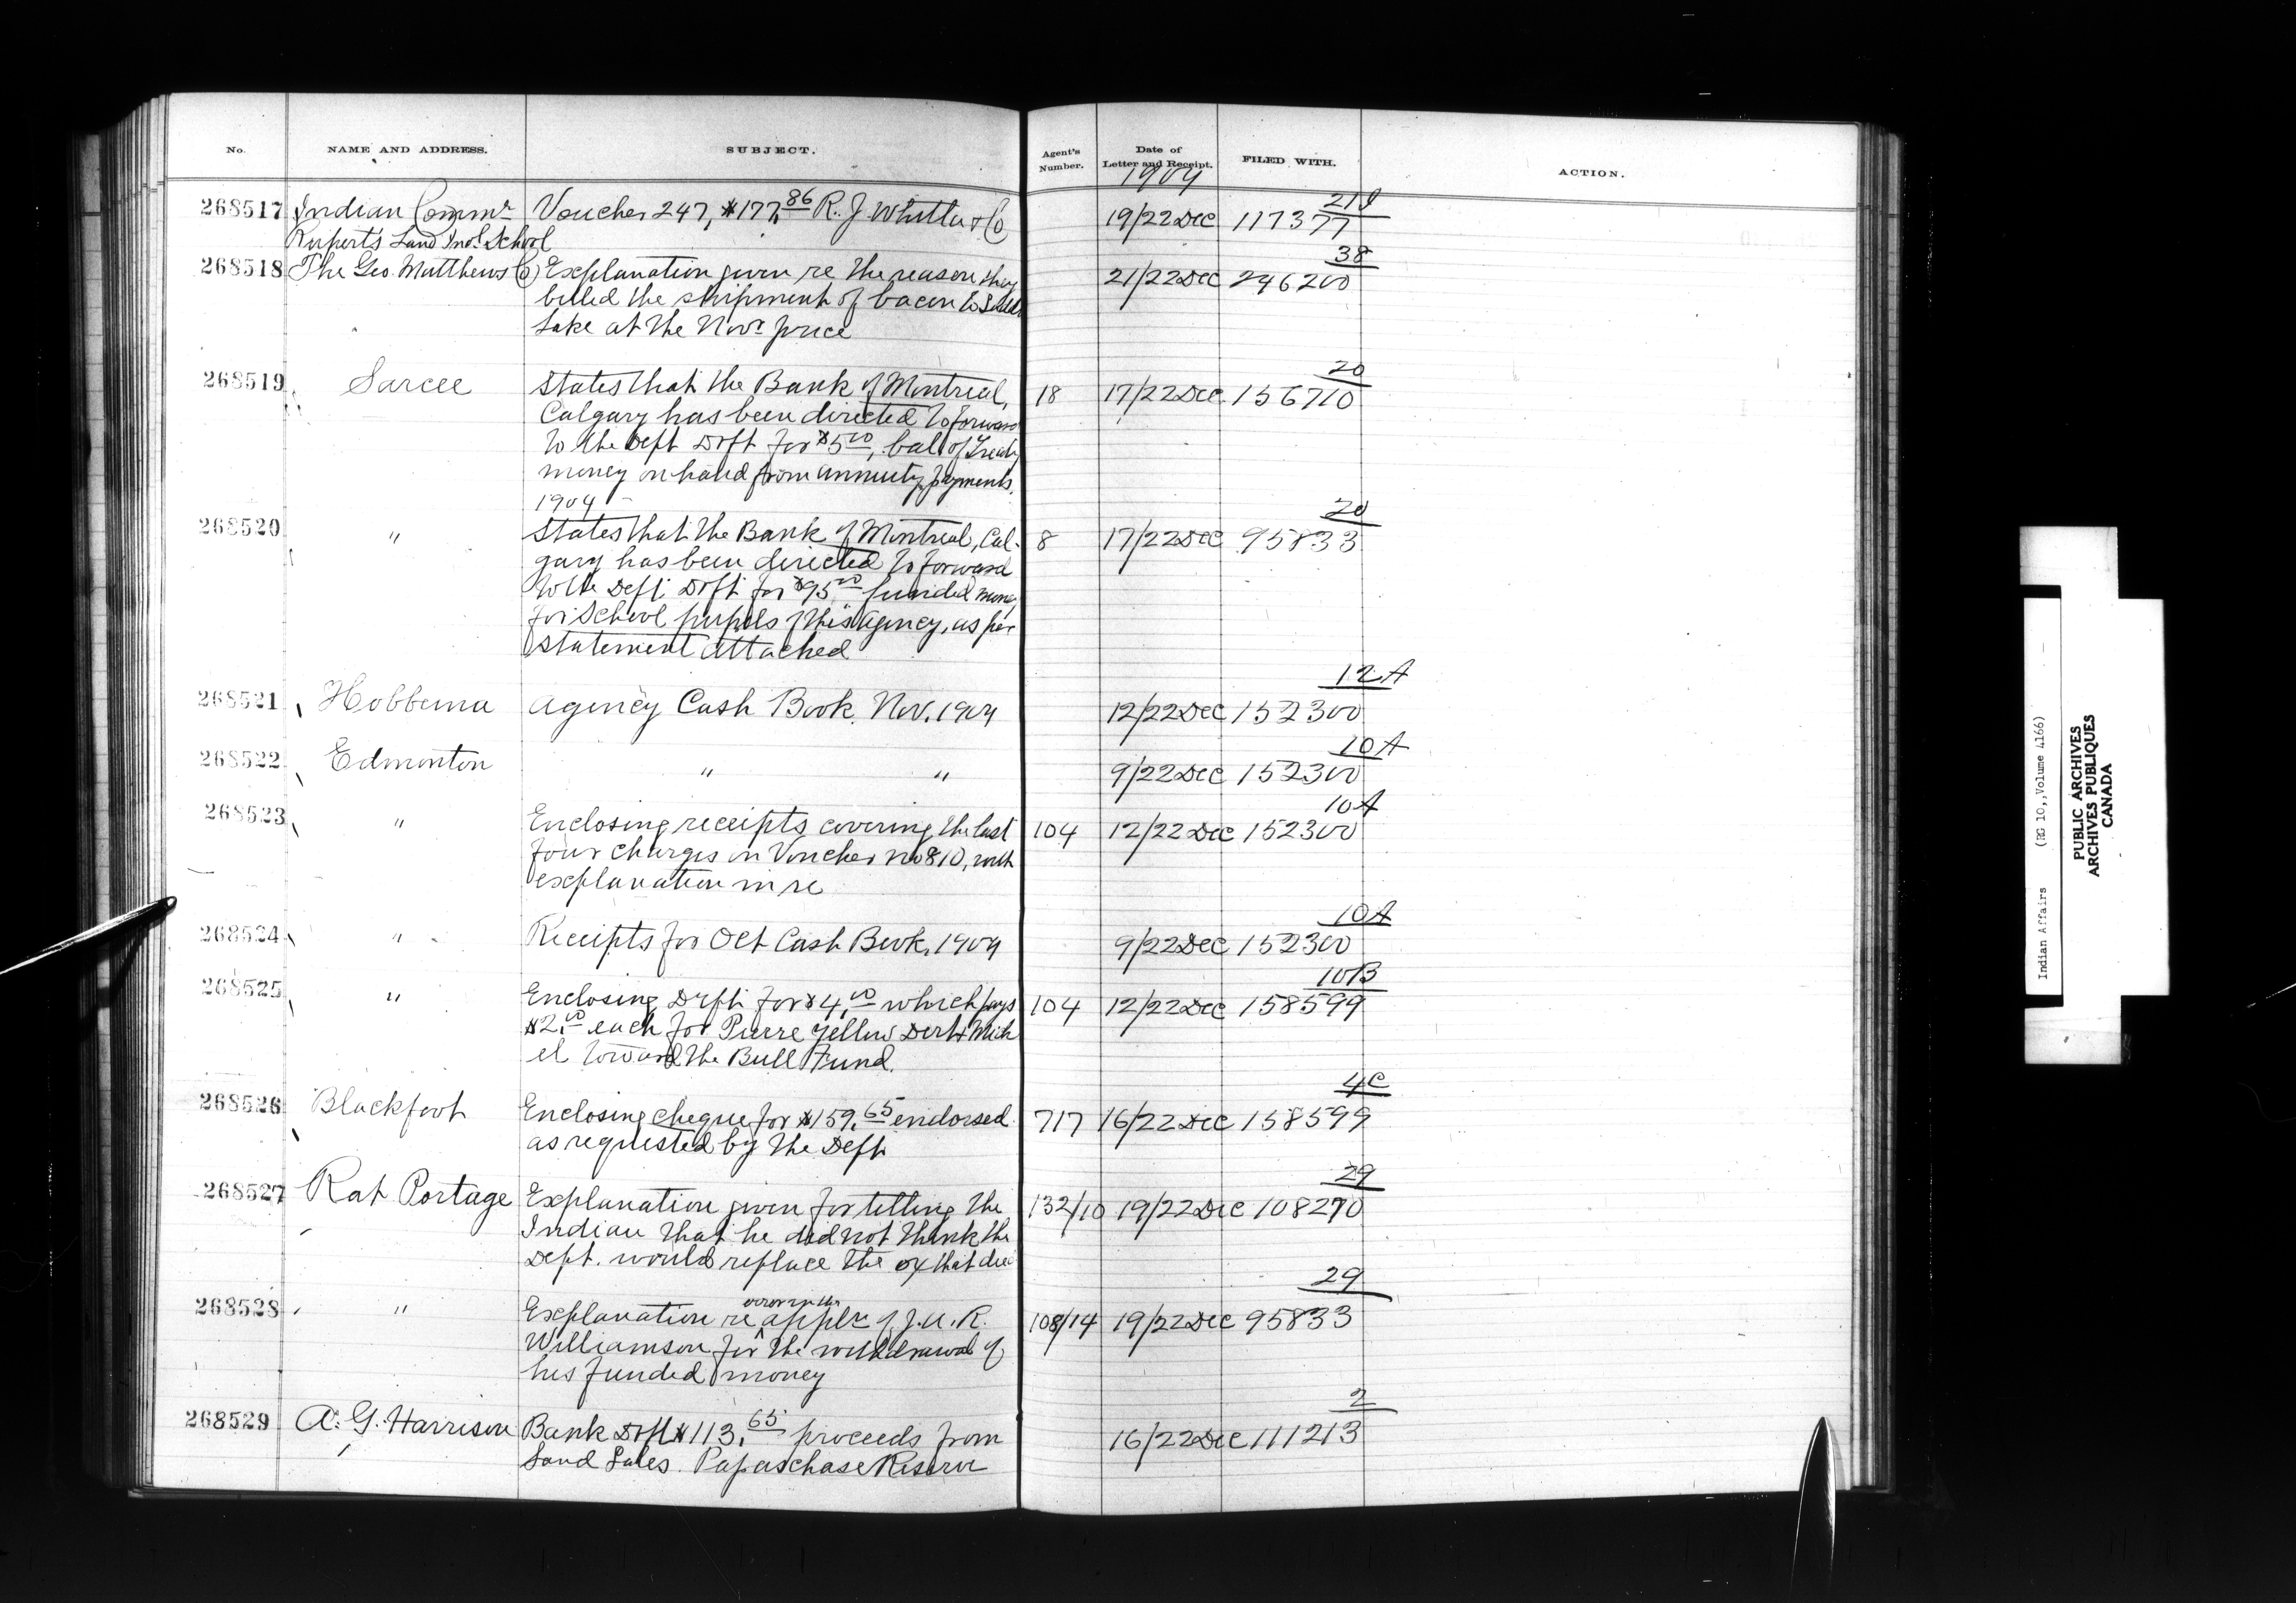 No. NAME AND ADDRESS. SUBJECT. Agent's Number. Date of Letter and Receipt. FILED WITH. ACTION.
1904
268517 Indian Commr Voucher 247, $177.86 R. J. Whitla & Co 19/22 Dec 117377 21I
Rupert's Land Indl School
268518 The Geo. Matthews Co Explanation given re the reason they 21/22 Dec 246200 38
billed the shipment of bacon to Saddle
Lake at the Novr price
268519 Sarcee States that the Bank of Montreal, 18 17/22 Dec 156710 20
Calgary has been directed to forward
to the Dept Drft for $5.00, bal of Treaty
money on hand from annuity payments,
1904
268520 " States that the Bank of Montreal, Cal- 8 17/22 Dec 95833 20
gary has been directed to forward
to the Dept Drft for $95.00 funded money
for School pupils of this Agency, as per
statement attached
268521 Hobbema Agency Cash Book Nov. 1904 12/22 Dec 152300 12A
268522 Edmonton " " 9/22 Dec 152300 10A
268523 " Enclosing receipts covering the last 104 12/22 Dec 152300 10A
four charges on Voucher no 810, with
explanation in re
268524 " Receipts for Oct Cash Book, 1904 9/22 Dec 152300 10A
268525 " Enclosing Drft for $4.00 which pays 104 12/22 Dec 158599 10B
$2.00 each for Pierre Yellow Dirt & Mich
el toward the Bull Fund.
268526 Blackfoot Enclosing cheque for $159.65 endorsed 717 16/22 Dec 158599 4C
as requested by the Dept
268527 Rat Portage Explanation given for telling the 132/10 19/22 Dec 108270 29
Indian that he did not think the
Dept. would replace the ox that died
268528 " Explanation re error in the applr of J. U. R. 108/14 19/22 Dec 95833 29
Williamson for the withdrawal of
his funded money
268529 A. G. Harrison Bank Drft $113.65 proceeds from 16/22 Dec 111213 2
Land Sales. Papaschase Reserve
Indian Affairs (RG 10, Volume 4166)
PUBLIC ARCHIVES
ARCHIVES PUBLIQUES
CANADA